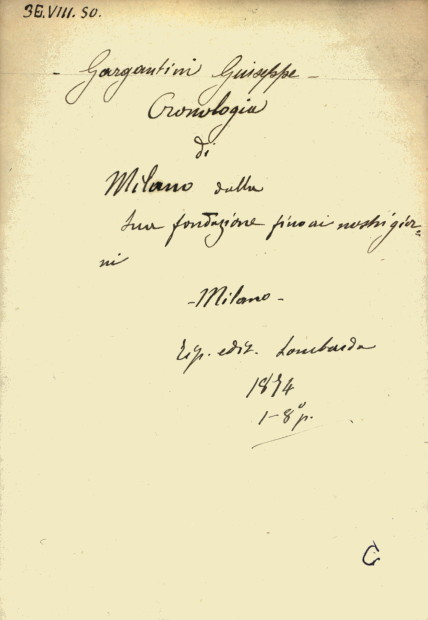 36.VIII.50.
- Gargantini Giuseppe -
Cronologia
di
Milano dalla
sua fondazione fino ai nostri gior=
ni
- Milano -
Tip. edit. Lombarda
1874
1-8º p.
G